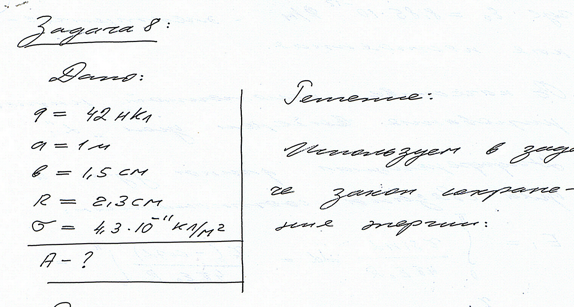 Задача 8:
Дано:
q = 42 нКл
a = 1 м
в = 1,5 см
R = 2,3 см
σ = 4,3·10⁻¹¹ Кл/м²
A - ?
Решение:
Используем в зада-
че закон сохране-
ния энергии: